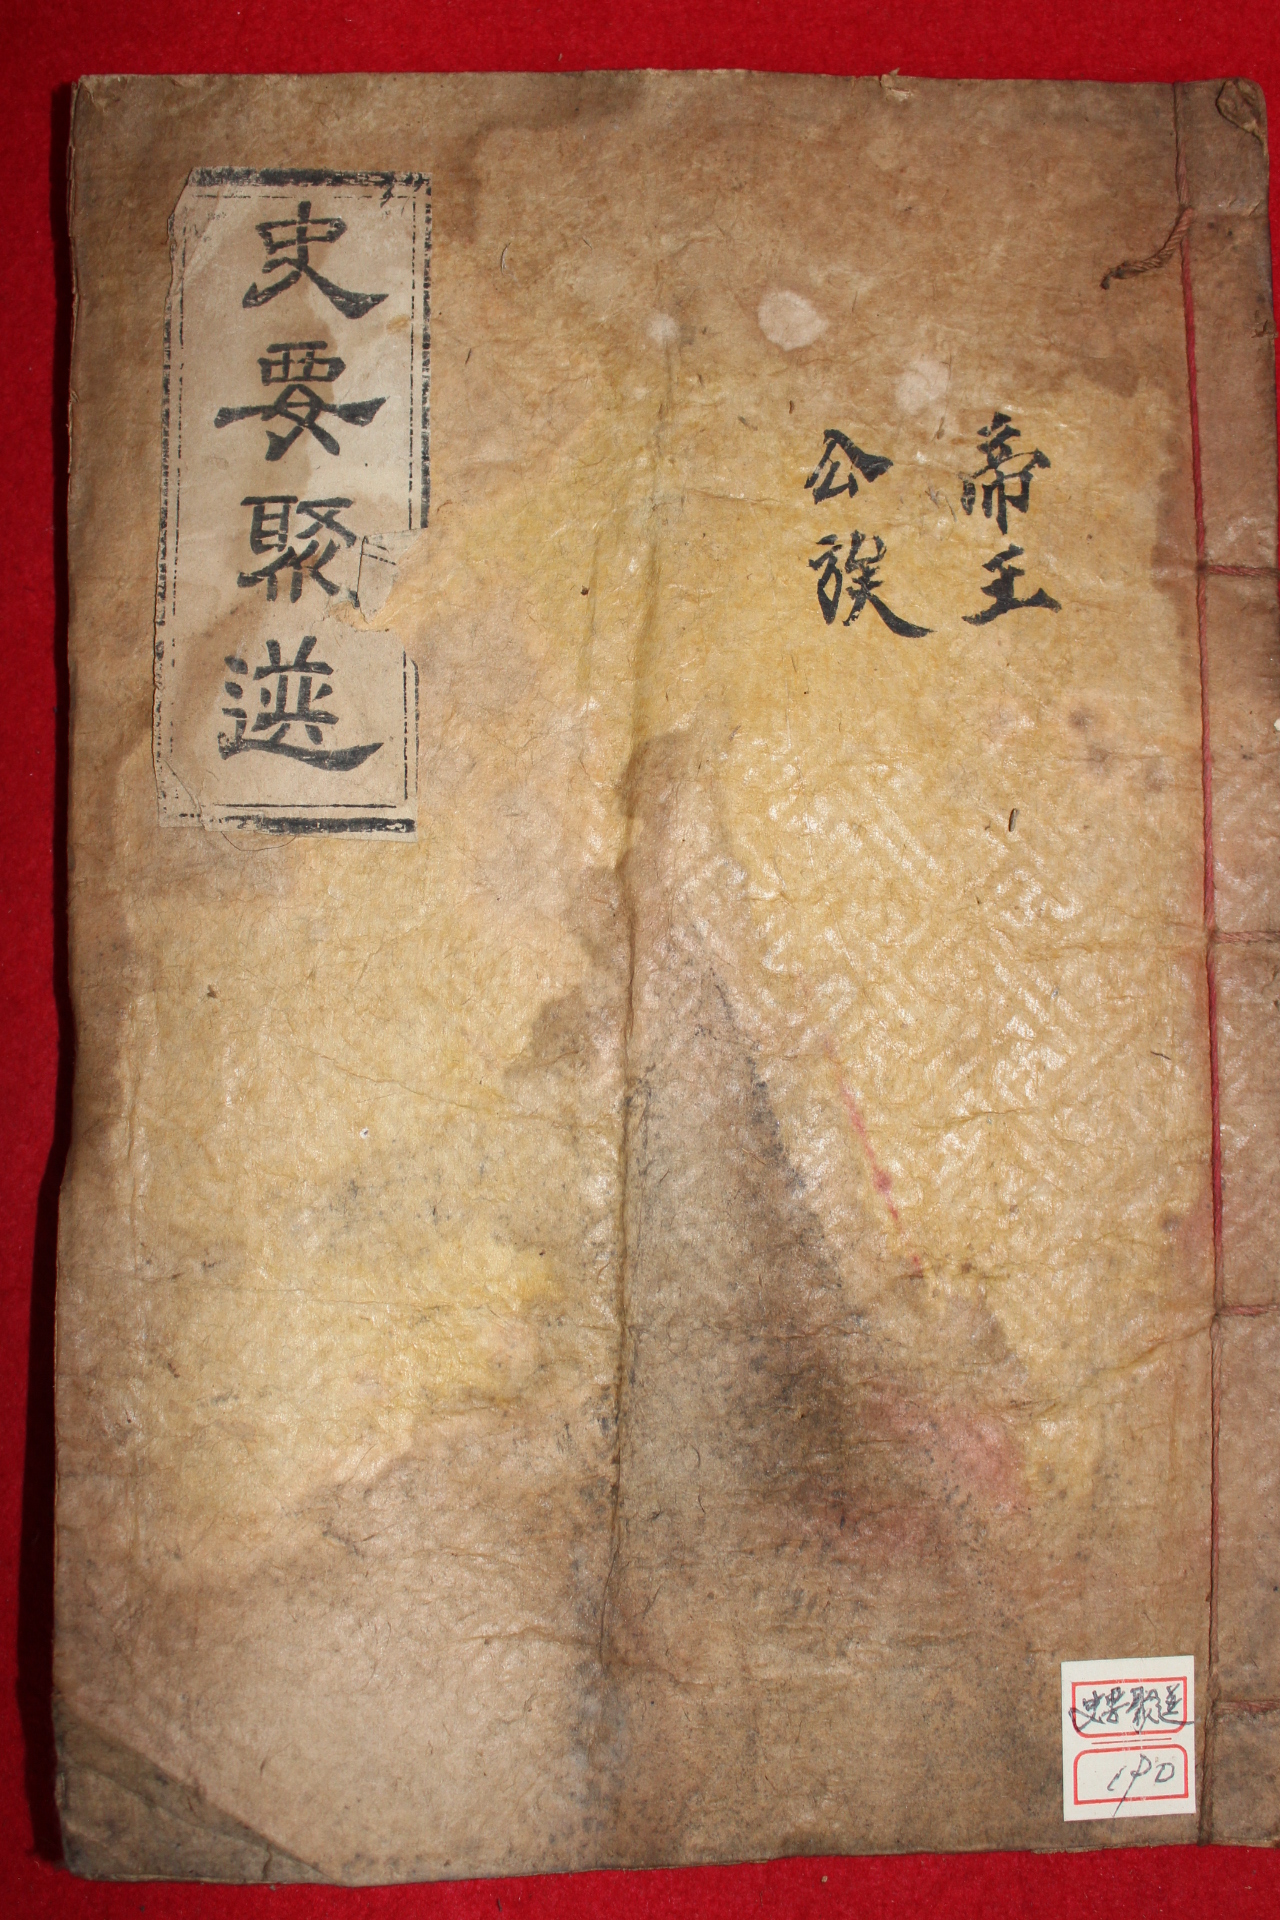 帝王
公族
史要聚選
史要聚選
190